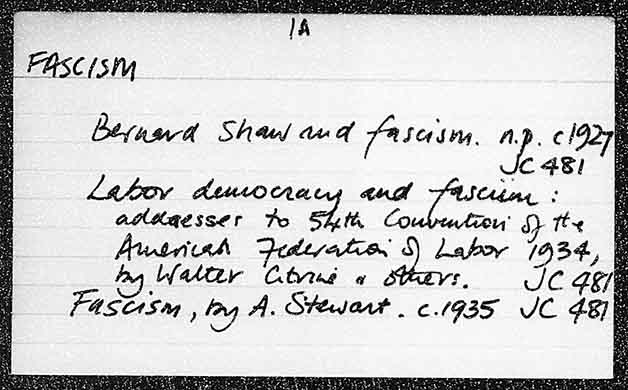 1A
FASCISM
Bernard Shaw and fascism. n.p. c1927
JC 481
Labor democracy and fascism :
addresses to 54th Convention of the
American Federation of Labor 1934,
by Walter Citrine & others. JC 481
Fascism, by A. Stewart. c.1935 JC 481